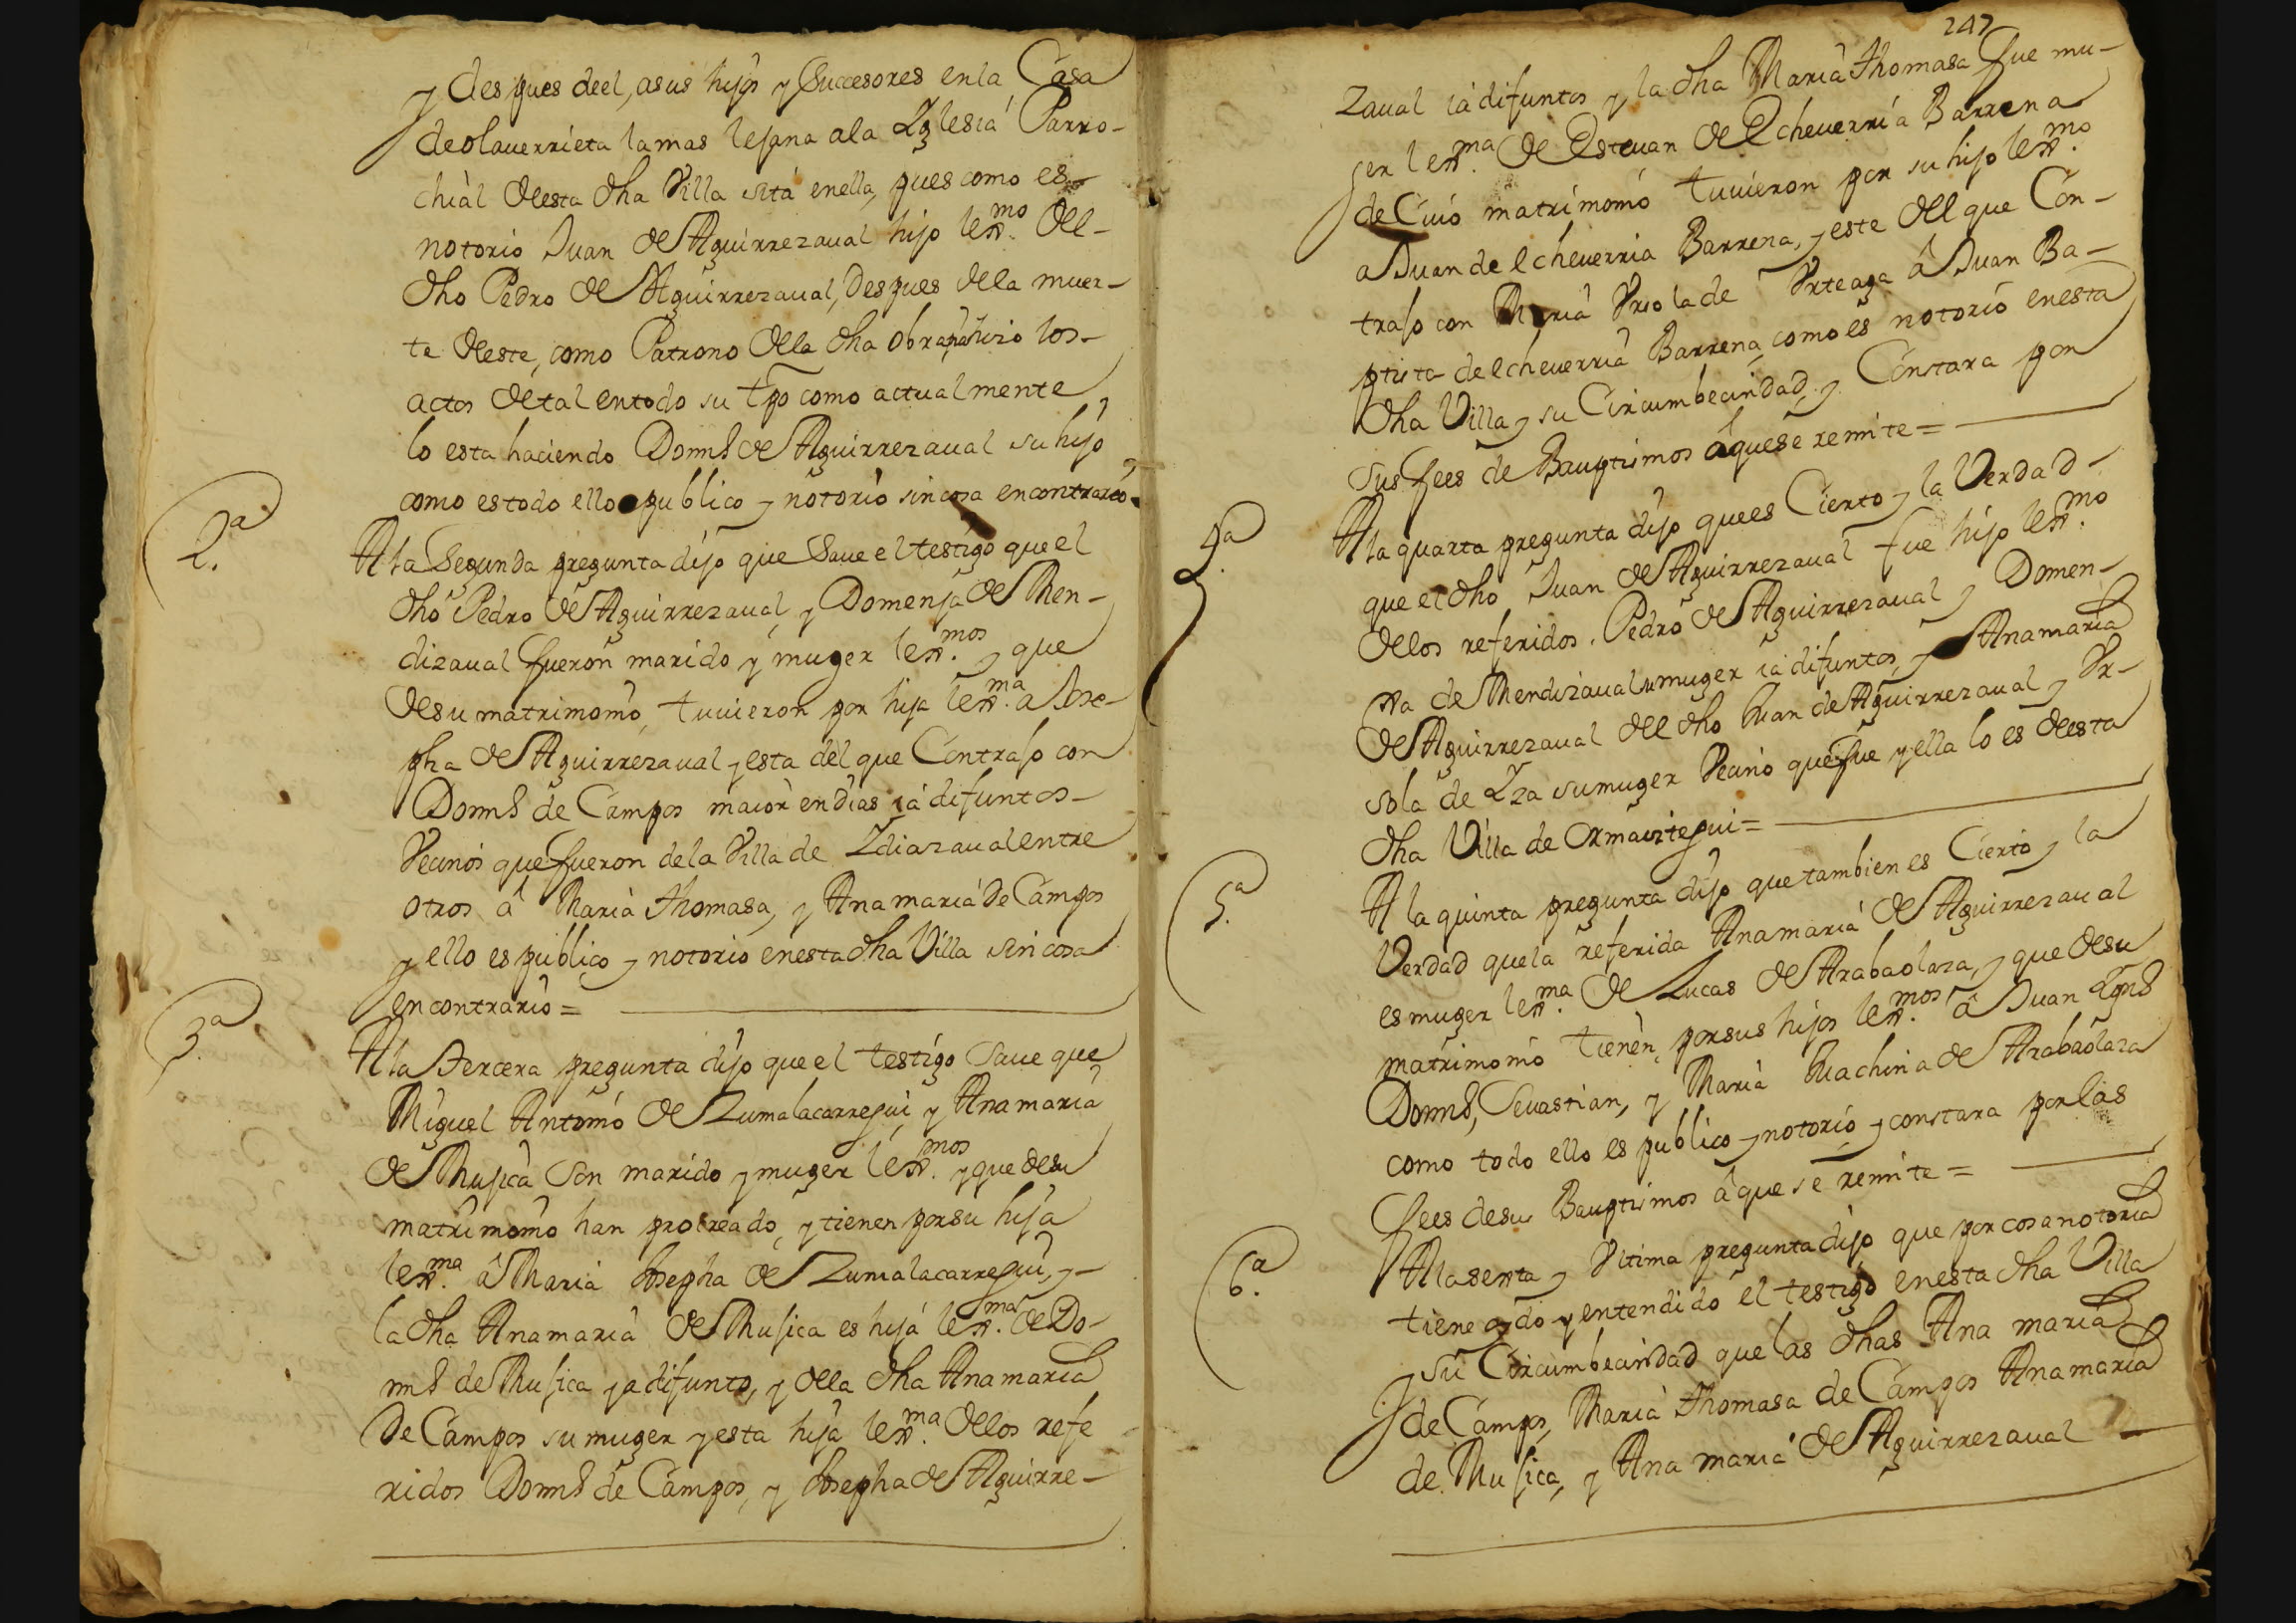 y despues deel, asus hijos y Succesores enla Casa
deolauerrieta lamas lejana ala Yglesia Parro-
chial desta dha Villa sita enella, pues como es
notorio Juan de Aguirrezaual hijo lexmo. del
dho Pedro de Aguirrezaual, Despues dela muer-
te deeste, como Patrono dela dha obrapia hizo los
actos de tal entodo su tpo como actualmente
lo esta haciendo Domns de Aguirrezaual su hijo
como es todo ello publico y notorio sin cosa encontrario
2.a
A la Segunda pregunta dijo que Saue el testigo que el
dho Pedro de Aguirrezaual, y Domenja de Men-
dizaual fueron marido y muger lexmos. y que
desu matrimonio, tuuieron por hija lexma. a Jose-
pha de Aguirrezaual y esta del que Contrajo con
Domns de Campos maior endias ia difuntos-
Vecinos que fueron dela Villa de Ydiazaual entre
otros â Maria Thomasa, y Anamaria De Campos
y ello es publico y notorio enesta dha Villa sin cosa
encontrario =
3.a
A la Tercera pregunta dijo que el testigo Saue que
Miguel Antonio de Zumalacarregui, y Anamaria
de Mujica Son marido y muger lexmos. y que desu
matrimonio han procreado, y tienen por su hija
lexma. â Maria Josepha de Zumalacarregui, y-
la dha Anamaria de Mujica es hija lexma. de Do-
mns de Mujica ya difunto, y dela dha Anamaria
De Campos su muger y esta hija lexma. delos refe
ridos Domns de Campos, y Josepha de Aguirre-
247
zaual ia difuntos y la dha Maria Thomasa fue mu-
jer lexma. de Esteuan de Echeuerria Barrena
de Cuio matrimonio tuuieron por su hijo lexmo.
a Juan de echeuerria Barrena, y este del que Con-
trajo con Maria Vrsola de Vrteaga â Juan Ba-
ptista de echeuerria Barrena como es notorio enesta
dha Villa y su Circumbecindad, y Constara por
Sus fees de Bauptismos âquese remite =
4.a
A la quarta pregunta dijo quees Cierto y la Verdad-
que el dho Juan de Aguirrezaual fue hijo lexmo.
delos referidos Pedro de Aguirrezaual y Domen-
xa de Mendizaual su muger ia difuntos, y Anamaria
de Aguirrezaual del dho Juan de Aguirrezaual y Vr-
sola de Yza sumuger Vecino que fue y ella lo es deesta
dha Villa de Ormaiztegui =
5.a
A la quinta pregunta dijo que tambien es Cierto y la
Verdad quela referida Anamaria de Aguirrezaual
es muger lexma. de Lucas de Arabaolaza, y que desu
matrimonio tienen, por sus hijos lexmos. â Juan Ygns
Domns, Seuastian, y Maria Juachina de Arabaolaza
como todo ello es publico y notorio y constara por las
fees desus Bauptismos âque se remite =
6.a
A la sexta y Vltima pregunta dijo que por cosa notoria
tiene oydo y entendido el testigo enesta dha Villa
y su Circumbecindad que las dhas Ana maria
de Campos, Maria Thomasa de Campos Anamaria
de Mujica, y Ana maria de Aguirrezaual